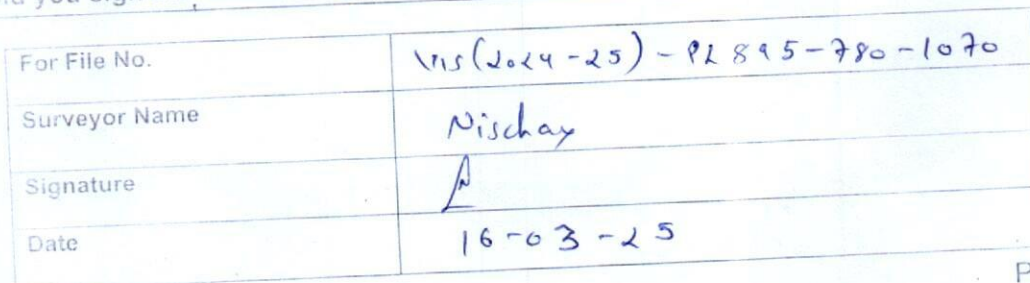 For File No. VIS(2024-25)-PL895-780-1070
Surveyor Name Nischay
Signature
Date 16-03-25